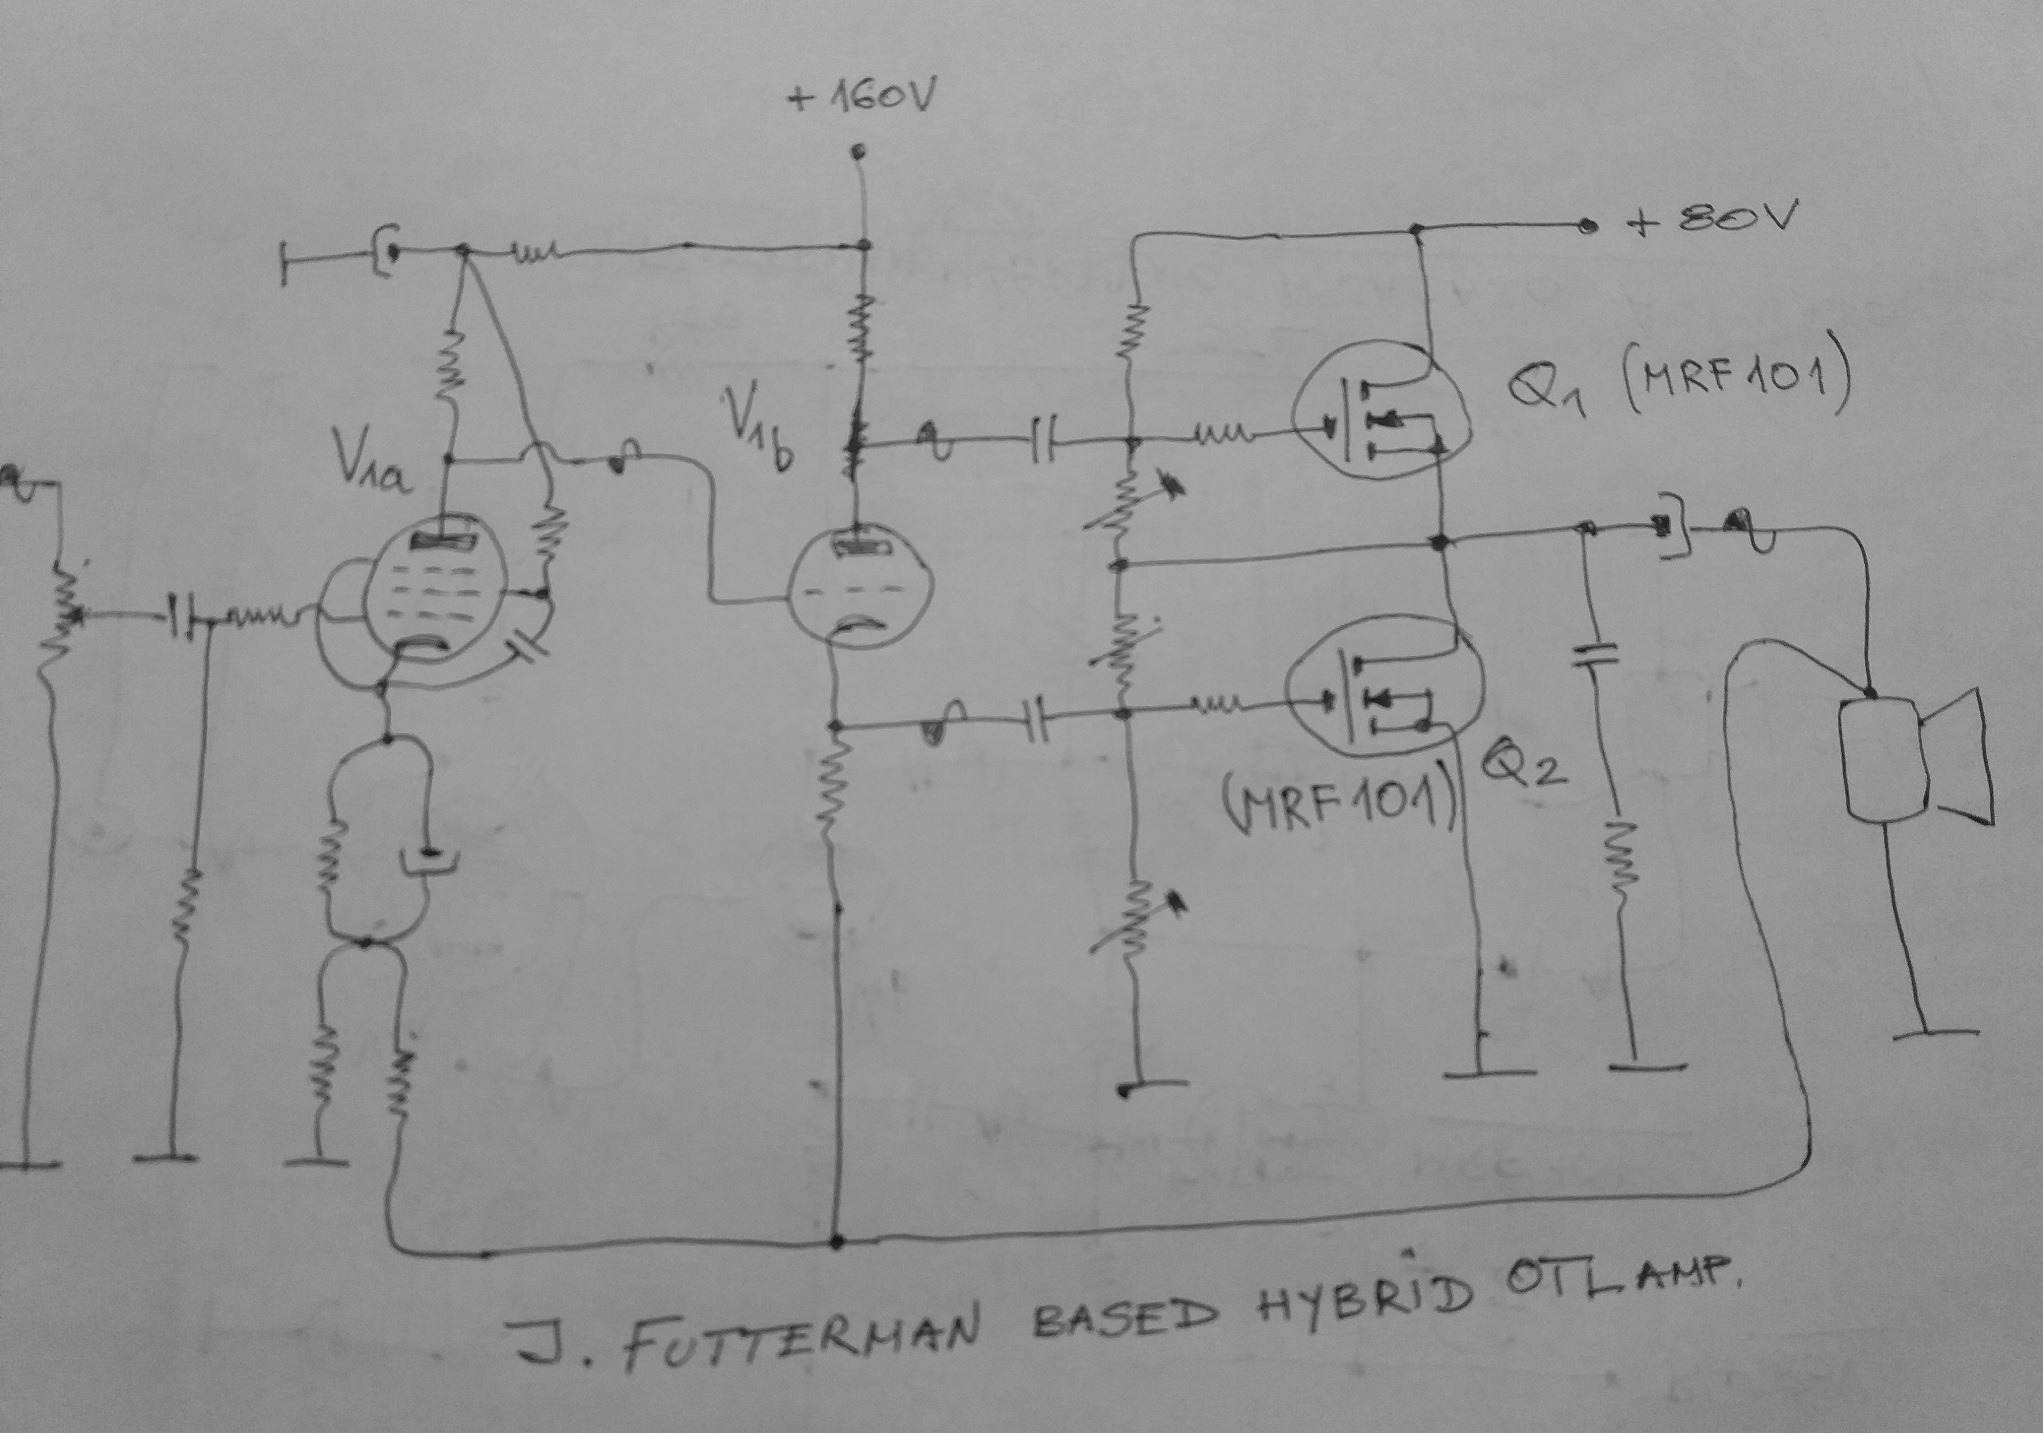 + 160V
+ 80V
V1a
V1b
Q1 (MRF101)
Q2
(MRF101)
J. FUTTERMAN BASED HYBRID OTL AMP.